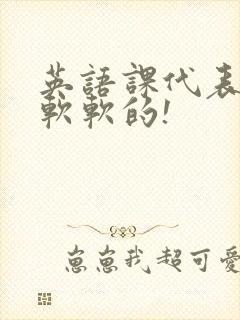 英語課代表
軟軟的!
崽崽我超可愛